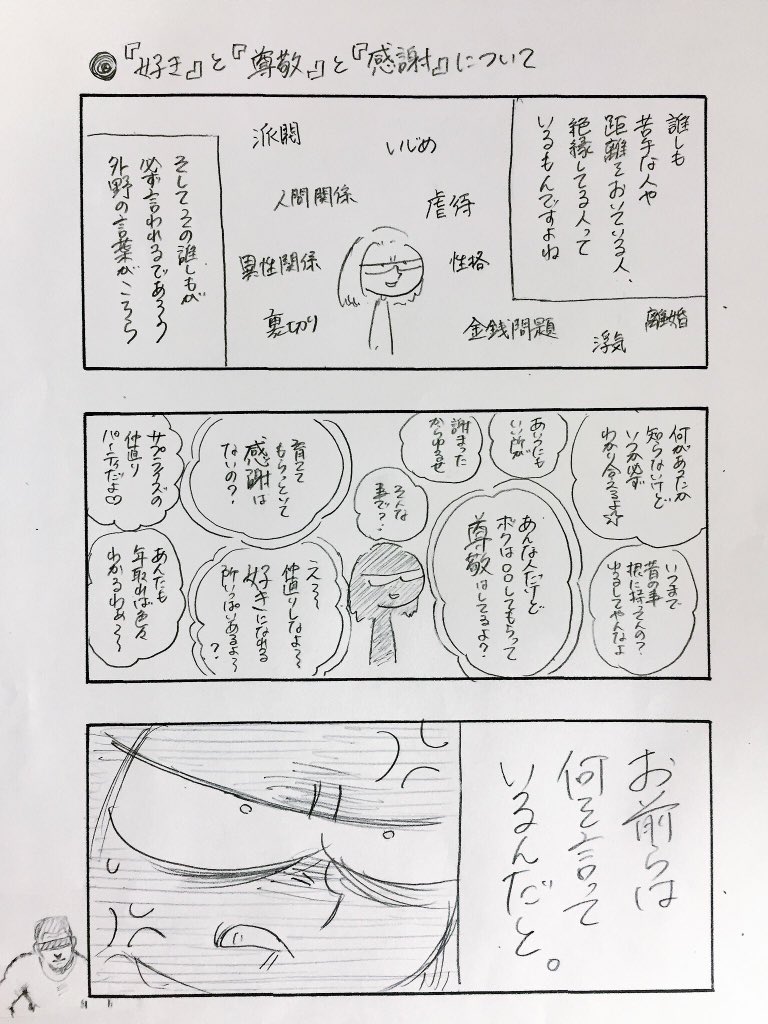 『好き』と『尊敬』と『感謝』について
誰しも
苦手な人や
距離をおいている人、
絶縁してる人って
いるもんですよね
派閥
いじめ
人間関係
虐待
異性関係
性格
裏切り
金銭問題
浮気
離婚
そしてその誰しもが
必ず言われるであろう
外野の言葉がこちら
何があったか
知らないけど
いつか必ず
わかり合えるよ♪
いつまで
昔の事
根に持ってんの?
ゆるしてやんなよ
あいつにも
いい所が
謝まった
からゆるせ
あんな人だけど
ボクは〇〇してもらって
尊敬はしてるよ?
そんな
事で?
育てて
もらっといて
感謝は
ないの?
え〜〜
仲直りしなよ〜〜
好きになれる
所いっぱいあるよ〜〜
?
サプライズの
仲直り
パーティだよ♡
あんたも
年取れば色々
わかるわぁ〜〜
お前らは
何を言って
いるんだと。